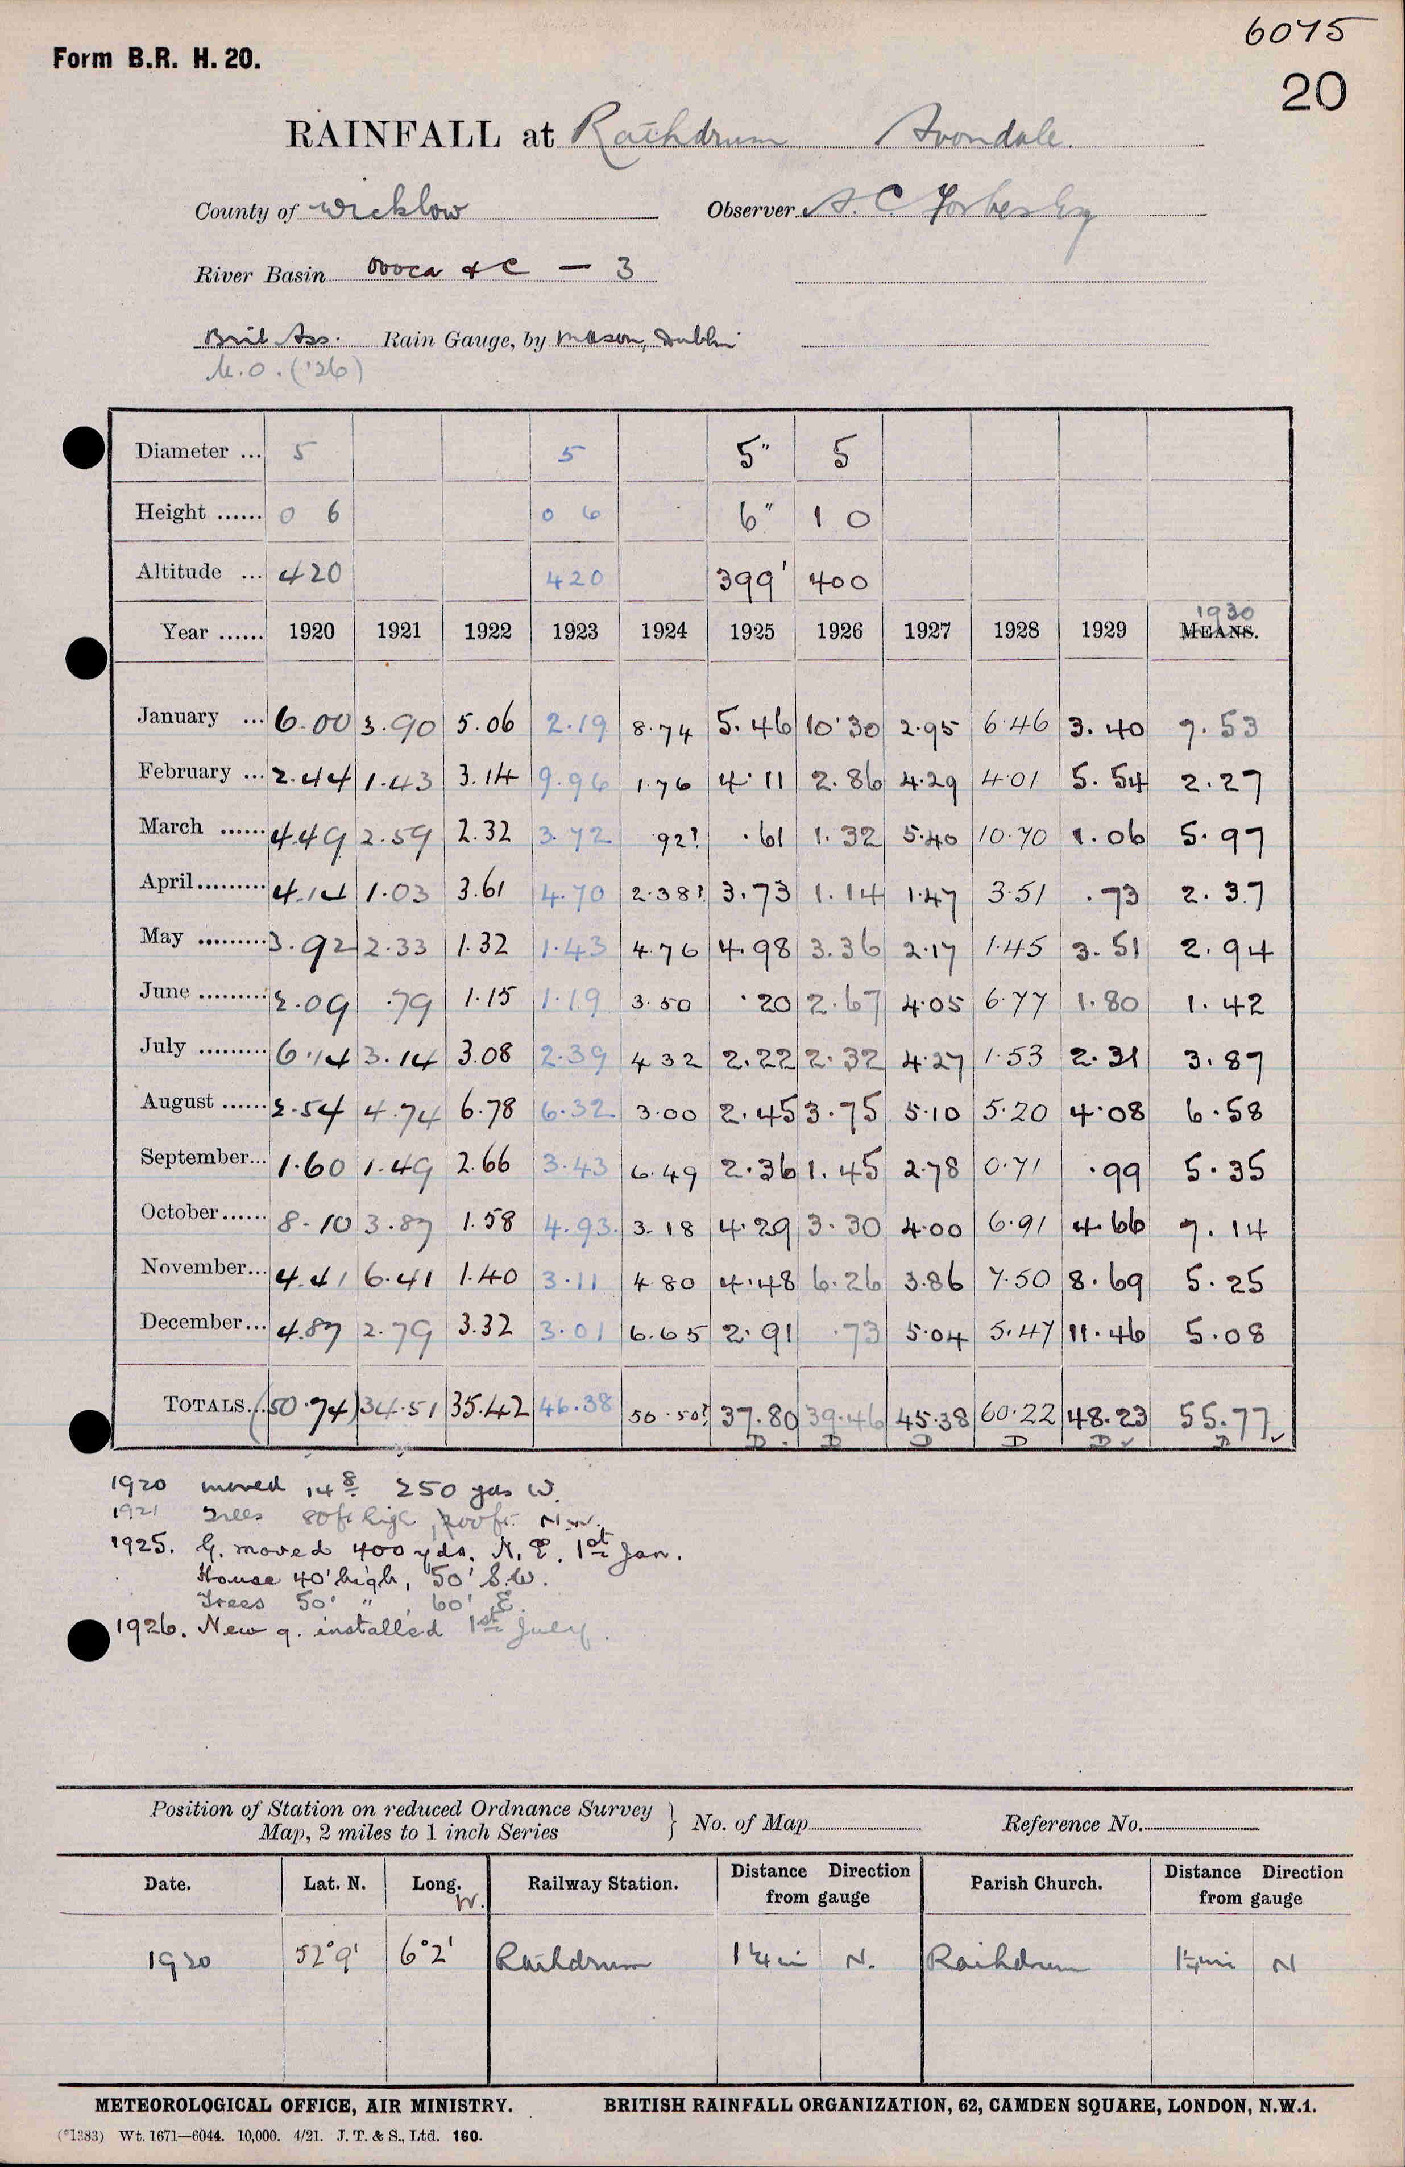 6075
Form B.R. H. 20.
20
RAINFALL at Rathdrum Avondale.
County of Wicklow Observer A. C. Forbes Esq
River Basin Ovoca & C — 3
Brit Ass. Rain Gauge, by Mason, Dublin
M.O. ('26)
Diameter ... 5 5 5" 5
Height ...... 0 6 0 6 6" 1 0
Altitude ... 420 420 399' 400
1930
Year ...... 1920 1921 1922 1923 1924 1925 1926 1927 1928 1929 MEANS.
January ... 6.00 3.90 5.06 2.19 8.74 5.46 10.30 2.95 6.46 3.40 7.53
February ... 2.44 1.43 3.14 9.96 1.76 4.11 2.86 4.29 4.01 5.54 2.27
March ...... 4.49 2.59 2.32 3.72 .92? .61 1.32 5.40 10.70 1.06 5.97
April......... 4.14 1.03 3.61 4.70 2.38? 3.73 1.14 1.47 3.51 .73 2.37
May ......... 3.92 2.33 1.32 1.43 4.76 4.98 3.36 2.17 1.45 3.51 2.94
June ......... 2.09 .79 1.15 1.19 3.50 .20 2.67 4.05 6.77 1.80 1.42
July ......... 6.14 3.14 3.08 2.39 4 32 2.22 2.32 4.27 1.53 2.31 3.87
August ...... 2.54 4.74 6.78 6.32 3.00 2.45 3.75 5.10 5.20 4.08 6.58
September... 1.60 1.49 2.66 3.43 6.49 2.36 1.45 2.78 0.71 .99 5.35
October...... 8.10 3.87 1.58 4.93 3.18 4.29 3.30 4.00 6.91 4.66 7.14
November... 4.41 6.41 1.40 3.11 4.80 4.48 6.26 3.86 7.50 8.69 5.25
December... 4.87 2.79 3.32 3.01 6.65 2.91 .73 5.04 5.47 11.46 5.08
TOTALS... (50.74) 34.51 35.42 46.38 50.50? 37.80 39.46 45.38 60.22 48.23 55.77
D D D D D D
1920 moved 14 8 250 yds W.
1921 Trees 80ft high, 200ft. N.W.
1925. G. moved 400 yds. N.E. 1st Jan.
House 40' high, 50' S.W.
Trees 50' " , 60' E.
1926. New g. installed 1st July.
Position of Station on reduced Ordnance Survey
Map, 2 miles to 1 inch Series } No. of Map Reference No.
Date. Lat. N. Long. W. Railway Station. Distance Direction from gauge Parish Church. Distance Direction from gauge
1920 52°9' 6°2' Rathdrum 1¼ m N. Rathdrum 1¼ mi N
METEOROLOGICAL OFFICE, AIR MINISTRY. BRITISH RAINFALL ORGANIZATION, 62, CAMDEN SQUARE, LONDON, N.W.1.
(*1383) Wt. 1671—6044. 10,000. 4/21. J. T. & S., Ltd. 160.